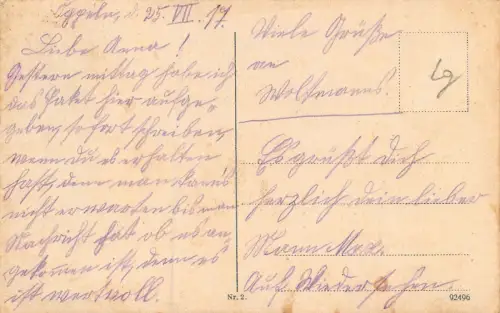 25. VII. 17.
Liebe Anna!
Gestern mittag habe ich
das Paket hier aufge-
geben, sofort schreiben,
wenn Du es erhalten
hast, denn man kann's
nicht erwarten bis man
Nachricht hat ob es an-
gekommen ist, denn es
ist wertvoll.
Viele Grüße
an
Wolfmanns.
Es grüßt Dich
herzlich dein lieber
Mann Max.
Auf Wiedersehn.
Nr. 2.
92496